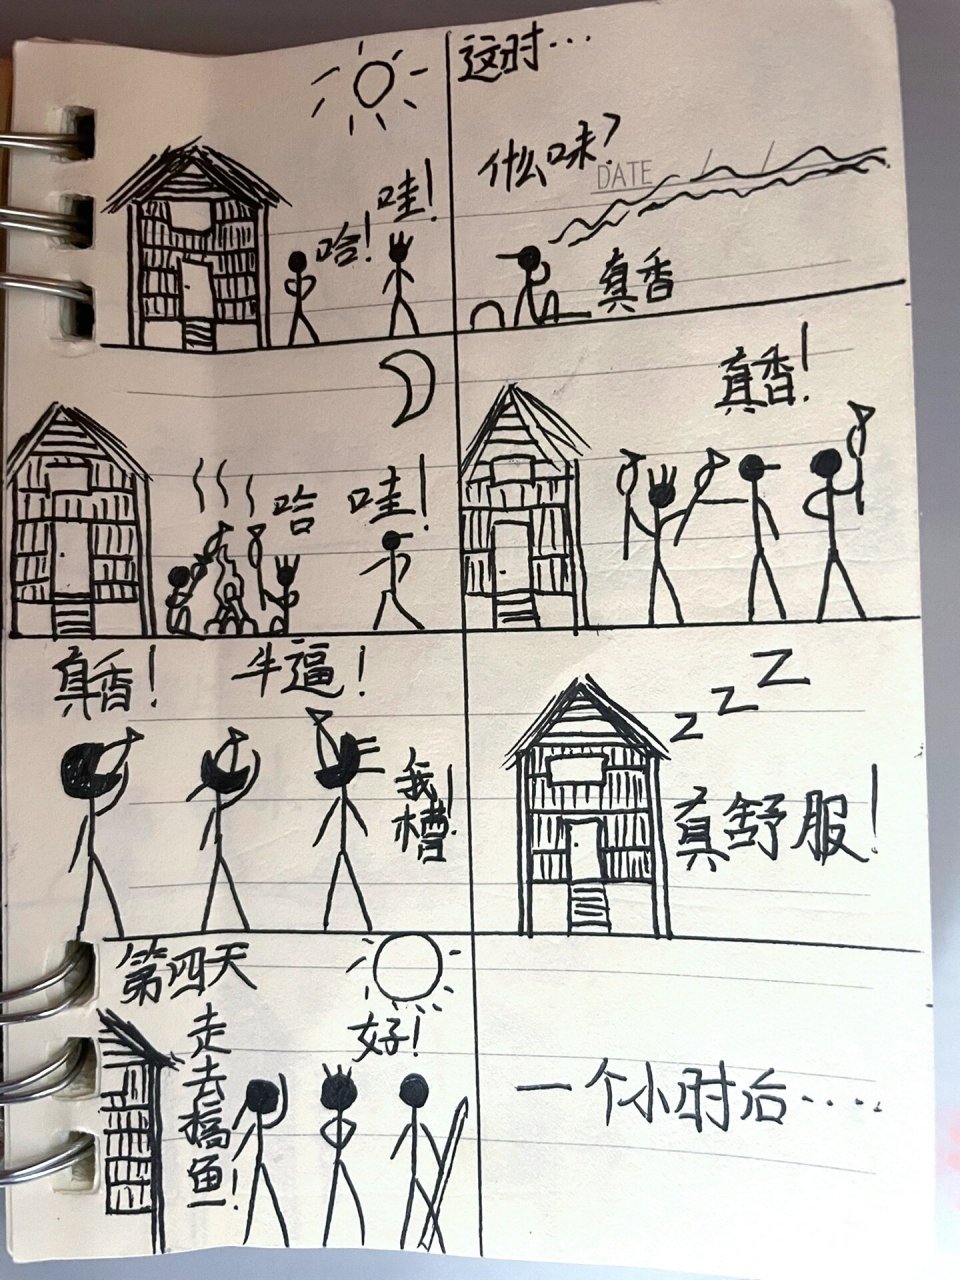 哈!
哇!
这时...
什么味?
DATE
真香
哈
哇!
真香!
真香!
牛逼!
我槽!
zzZ
真舒服!
第四天
走去搞鱼!
好!
一个小时后....